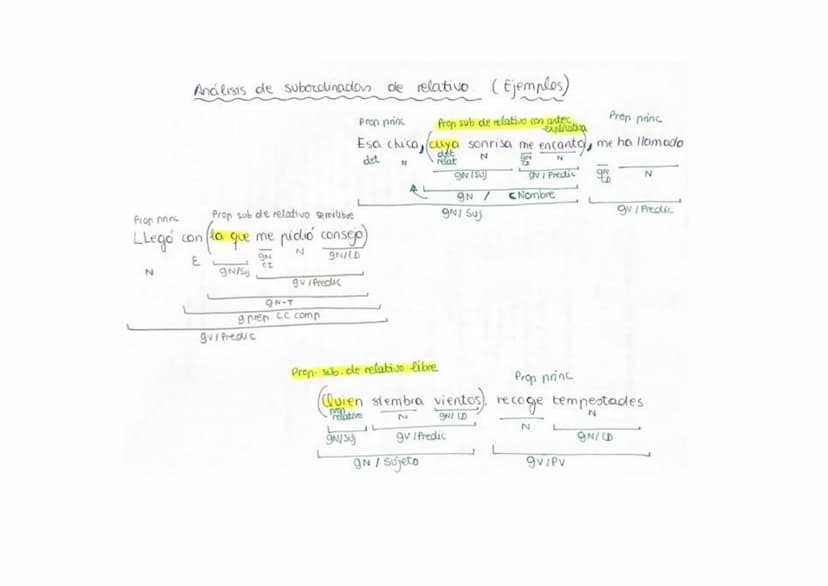 Análisis de subordinadas de relativo (Ejemplos)
Prop princ Prop sub de relativo con antec explicativa Prop princ
Esa chica, (cuya sonrisa me encanta), me ha llamado
det N det relat N gN CD N gN CD N
gN/Suj gV/Predic
gN / CNombre
gN/Suj gV/Predic
Prop princ Prop sub de relativo semilibre
LLegó con (la que me pidió consejo)
N E gN/Suj gN CI N gN/CD
gV/Predic
gN-T
g prep. CC comp
gV/Predic
Prop. sub. de relativo libre Prop princ
(Quien siembra vientos), recoge tempestades
pron relativo N gN/CD N N
gN/Suj gV/Predic gN/CD
gN / Sujeto gV/PV